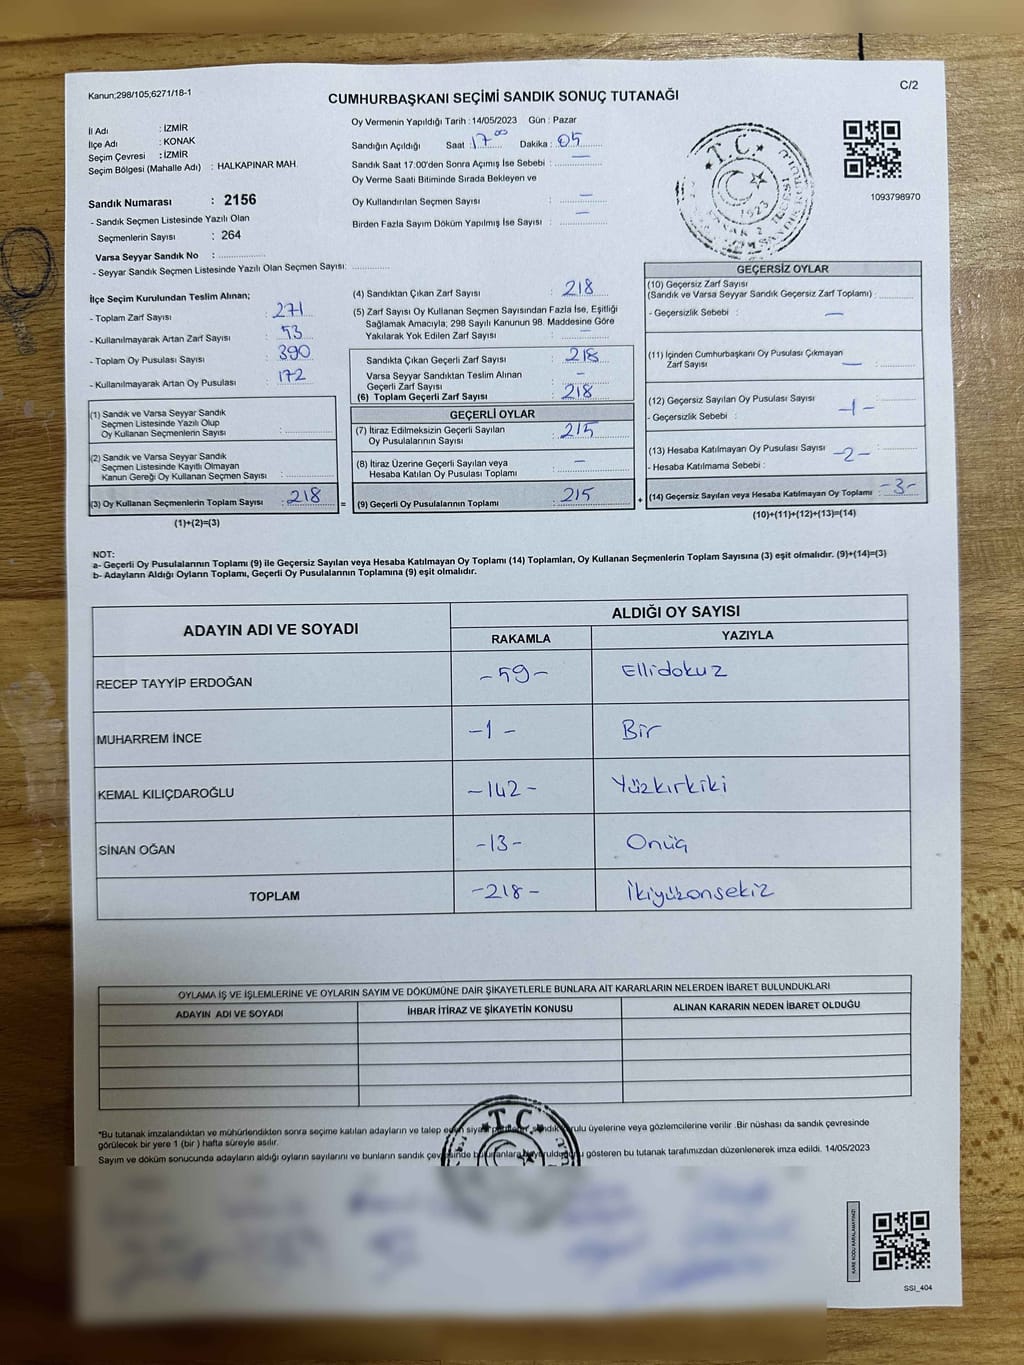 Kanun;298/105;6271/18-1
C/2
CUMHURBAŞKANI SEÇİMİ SANDIK SONUÇ TUTANAĞI
İl Adı : İZMİR
İlçe Adı : KONAK
Seçim Çevresi : İZMİR
Seçim Bölgesi (Mahalle Adı) : HALKAPINAR MAH.
Sandık Numarası : 2156
- Sandık Seçmen Listesinde Yazılı Olan
Seçmenlerin Sayısı : 264
Varsa Seyyar Sandık No :
- Seyyar Sandık Seçmen Listesinde Yazılı Olan Seçmen Sayısı:
Oy Vermenin Yapıldığı Tarih : 14/05/2023 Gün : Pazar
Sandığın Açıldığı Saat : 17⁰⁰ Dakika : 05
Sandık Saat 17:00'den Sonra Açımış İse Sebebi : —
Oy Verme Saati Bitiminde Sırada Bekleyen ve
Oy Kullandırılan Seçmen Sayısı : —
Birden Fazla Sayım Döküm Yapılmış İse Sayısı : —
T.C.
1923
1093798970
İlçe Seçim Kurulundan Teslim Alınan;
- Toplam Zarf Sayısı : 271
- Kullanılmayarak Artan Zarf Sayısı : 53
- Toplam Oy Pusulası Sayısı : 390
- Kullanılmayarak Artan Oy Pusulası : 172
(1) Sandık ve Varsa Seyyar Sandık
Seçmen Listesinde Yazılı Olup
Oy Kullanan Seçmenlerin Sayısı :
(2) Sandık ve Varsa Seyyar Sandık
Seçmen Listesinde Kayıtlı Olmayan
Kanun Gereği Oy Kullanan Seçmen Sayısı :
(3) Oy Kullanan Seçmenlerin Toplam Sayısı : 218 =
(1)+(2)=(3)
(4) Sandıktan Çıkan Zarf Sayısı : 218
(5) Zarf Sayısı Oy Kullanan Seçmen Sayısından Fazla İse, Eşitliği
Sağlamak Amacıyla; 298 Sayılı Kanunun 98. Maddesine Göre
Yakılarak Yok Edilen Zarf Sayısı : —
Sandıkta Çıkan Geçerli Zarf Sayısı : 218
Varsa Seyyar Sandıktan Teslim Alınan
Geçerli Zarf Sayısı : —
(6) Toplam Geçerli Zarf Sayısı : 218
GEÇERLİ OYLAR
(7) İtiraz Edilmeksizin Geçerli Sayılan
Oy Pusulalarının Sayısı : 215
(8) İtiraz Üzerine Geçerli Sayılan veya
Hesaba Katılan Oy Pusulası Toplamı : —
(9) Geçerli Oy Pusulalarının Toplamı : 215 +
GEÇERSİZ OYLAR
(10) Geçersiz Zarf Sayısı
(Sandık ve Varsa Seyyar Sandık Geçersiz Zarf Toplamı) :
- Geçersizlik Sebebi : —
(11) İçinden Cumhurbaşkanı Oy Pusulası Çıkmayan
Zarf Sayısı — :
(12) Geçersiz Sayılan Oy Pusulası Sayısı :
- Geçersizlik Sebebi : -1-
(13) Hesaba Katılmayan Oy Pusulası Sayısı -2- :
- Hesaba Katılmama Sebebi :
(14) Geçersiz Sayılan veya Hesaba Katılmayan Oy Toplamı : -3-
(10)+(11)+(12)+(13)=(14)
NOT:
a- Geçerli Oy Pusulalarının Toplamı (9) ile Geçersiz Sayılan veya Hesaba Katılmayan Oy Toplamı (14) Toplamları, Oy Kullanan Seçmenlerin Toplam Sayısına (3) eşit olmalıdır. (9)+(14)=(3)
b- Adayların Aldığı Oyların Toplamı, Geçerli Oy Pusulalarının Toplamına (9) eşit olmalıdır.
ADAYIN ADI VE SOYADI ALDIĞI OY SAYISI
RAKAMLA YAZIYLA
RECEP TAYYİP ERDOĞAN -59- Ellidokuz
MUHARREM İNCE -1- Bir
KEMAL KILIÇDAROĞLU -142- Yüzkırkiki
SİNAN OĞAN -13- Onüç
TOPLAM -218- İkiyüzonsekiz
OYLAMA İŞ VE İŞLEMLERİNE VE OYLARIN SAYIM VE DÖKÜMÜNE DAİR ŞİKAYETLERLE BUNLARA AİT KARARLARIN NELERDEN İBARET BULUNDUKLARI
ADAYIN ADI VE SOYADI İHBAR İTİRAZ VE ŞİKAYETİN KONUSU ALINAN KARARIN NEDEN İBARET OLDUĞU
*Bu tutanak imzalandıktan ve mühürlendikten sonra seçime katılan adayların ve talep eden siyasi sandık kurulu üyelerine veya gözlemcilerine verilir .Bir nüshası da sandık çevresinde
görülecek bir yere 1 (bir ) hafta süreyle asılır.
Sayım ve döküm sonucunda adayların aldığı oyların sayılarını ve bunların sandık gösteren bu tutanak tarafımızdan düzenlenerek imza edildi. 14/05/2023
T.C.
KARE KODU KARALAMAYINIZ!
SSI_404